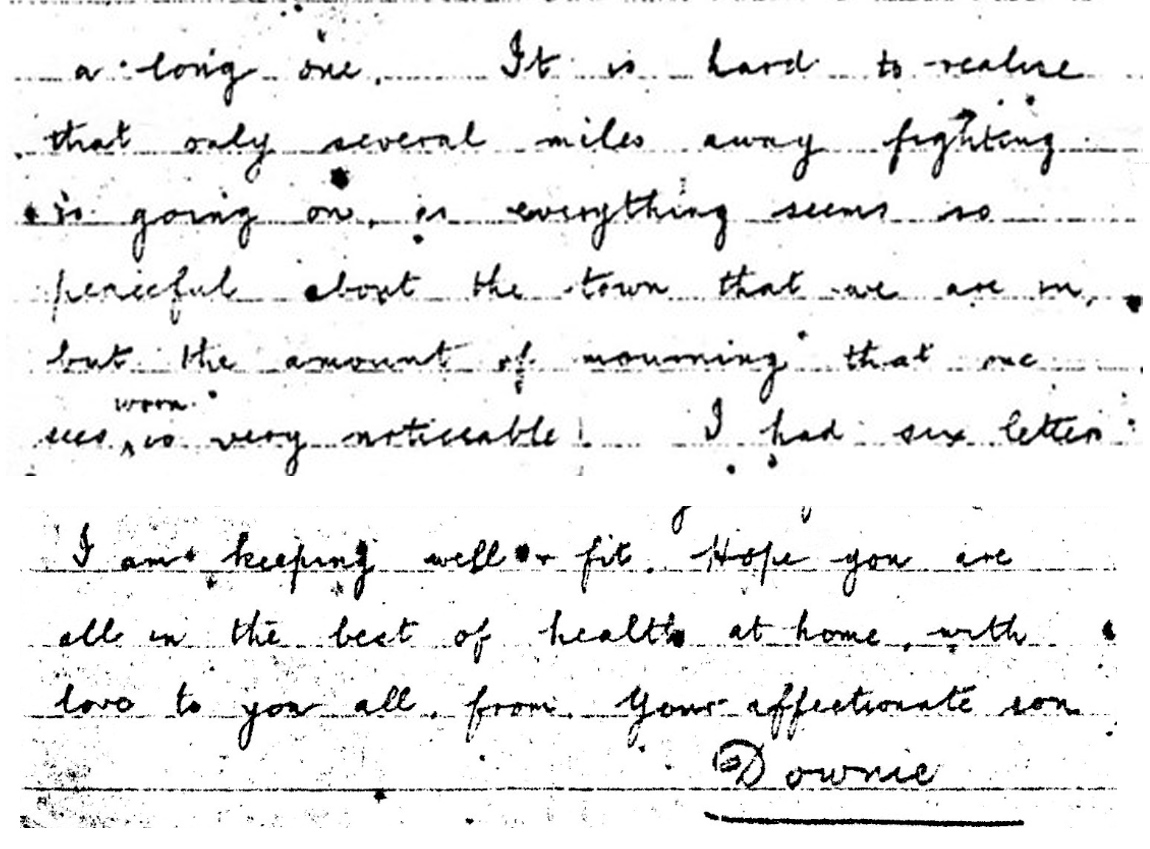 a long one. It is hard to realise
that only several miles away fighting
is going on, as everything seems so
peaceful about the town that we are in,
but the amount of mourning that one
worn
sees ^ is very noticeable! I had six letters
I am keeping well & fit. Hope you are
all in the best of health at home, with
love to you all, from. Your affectionate son
Downie